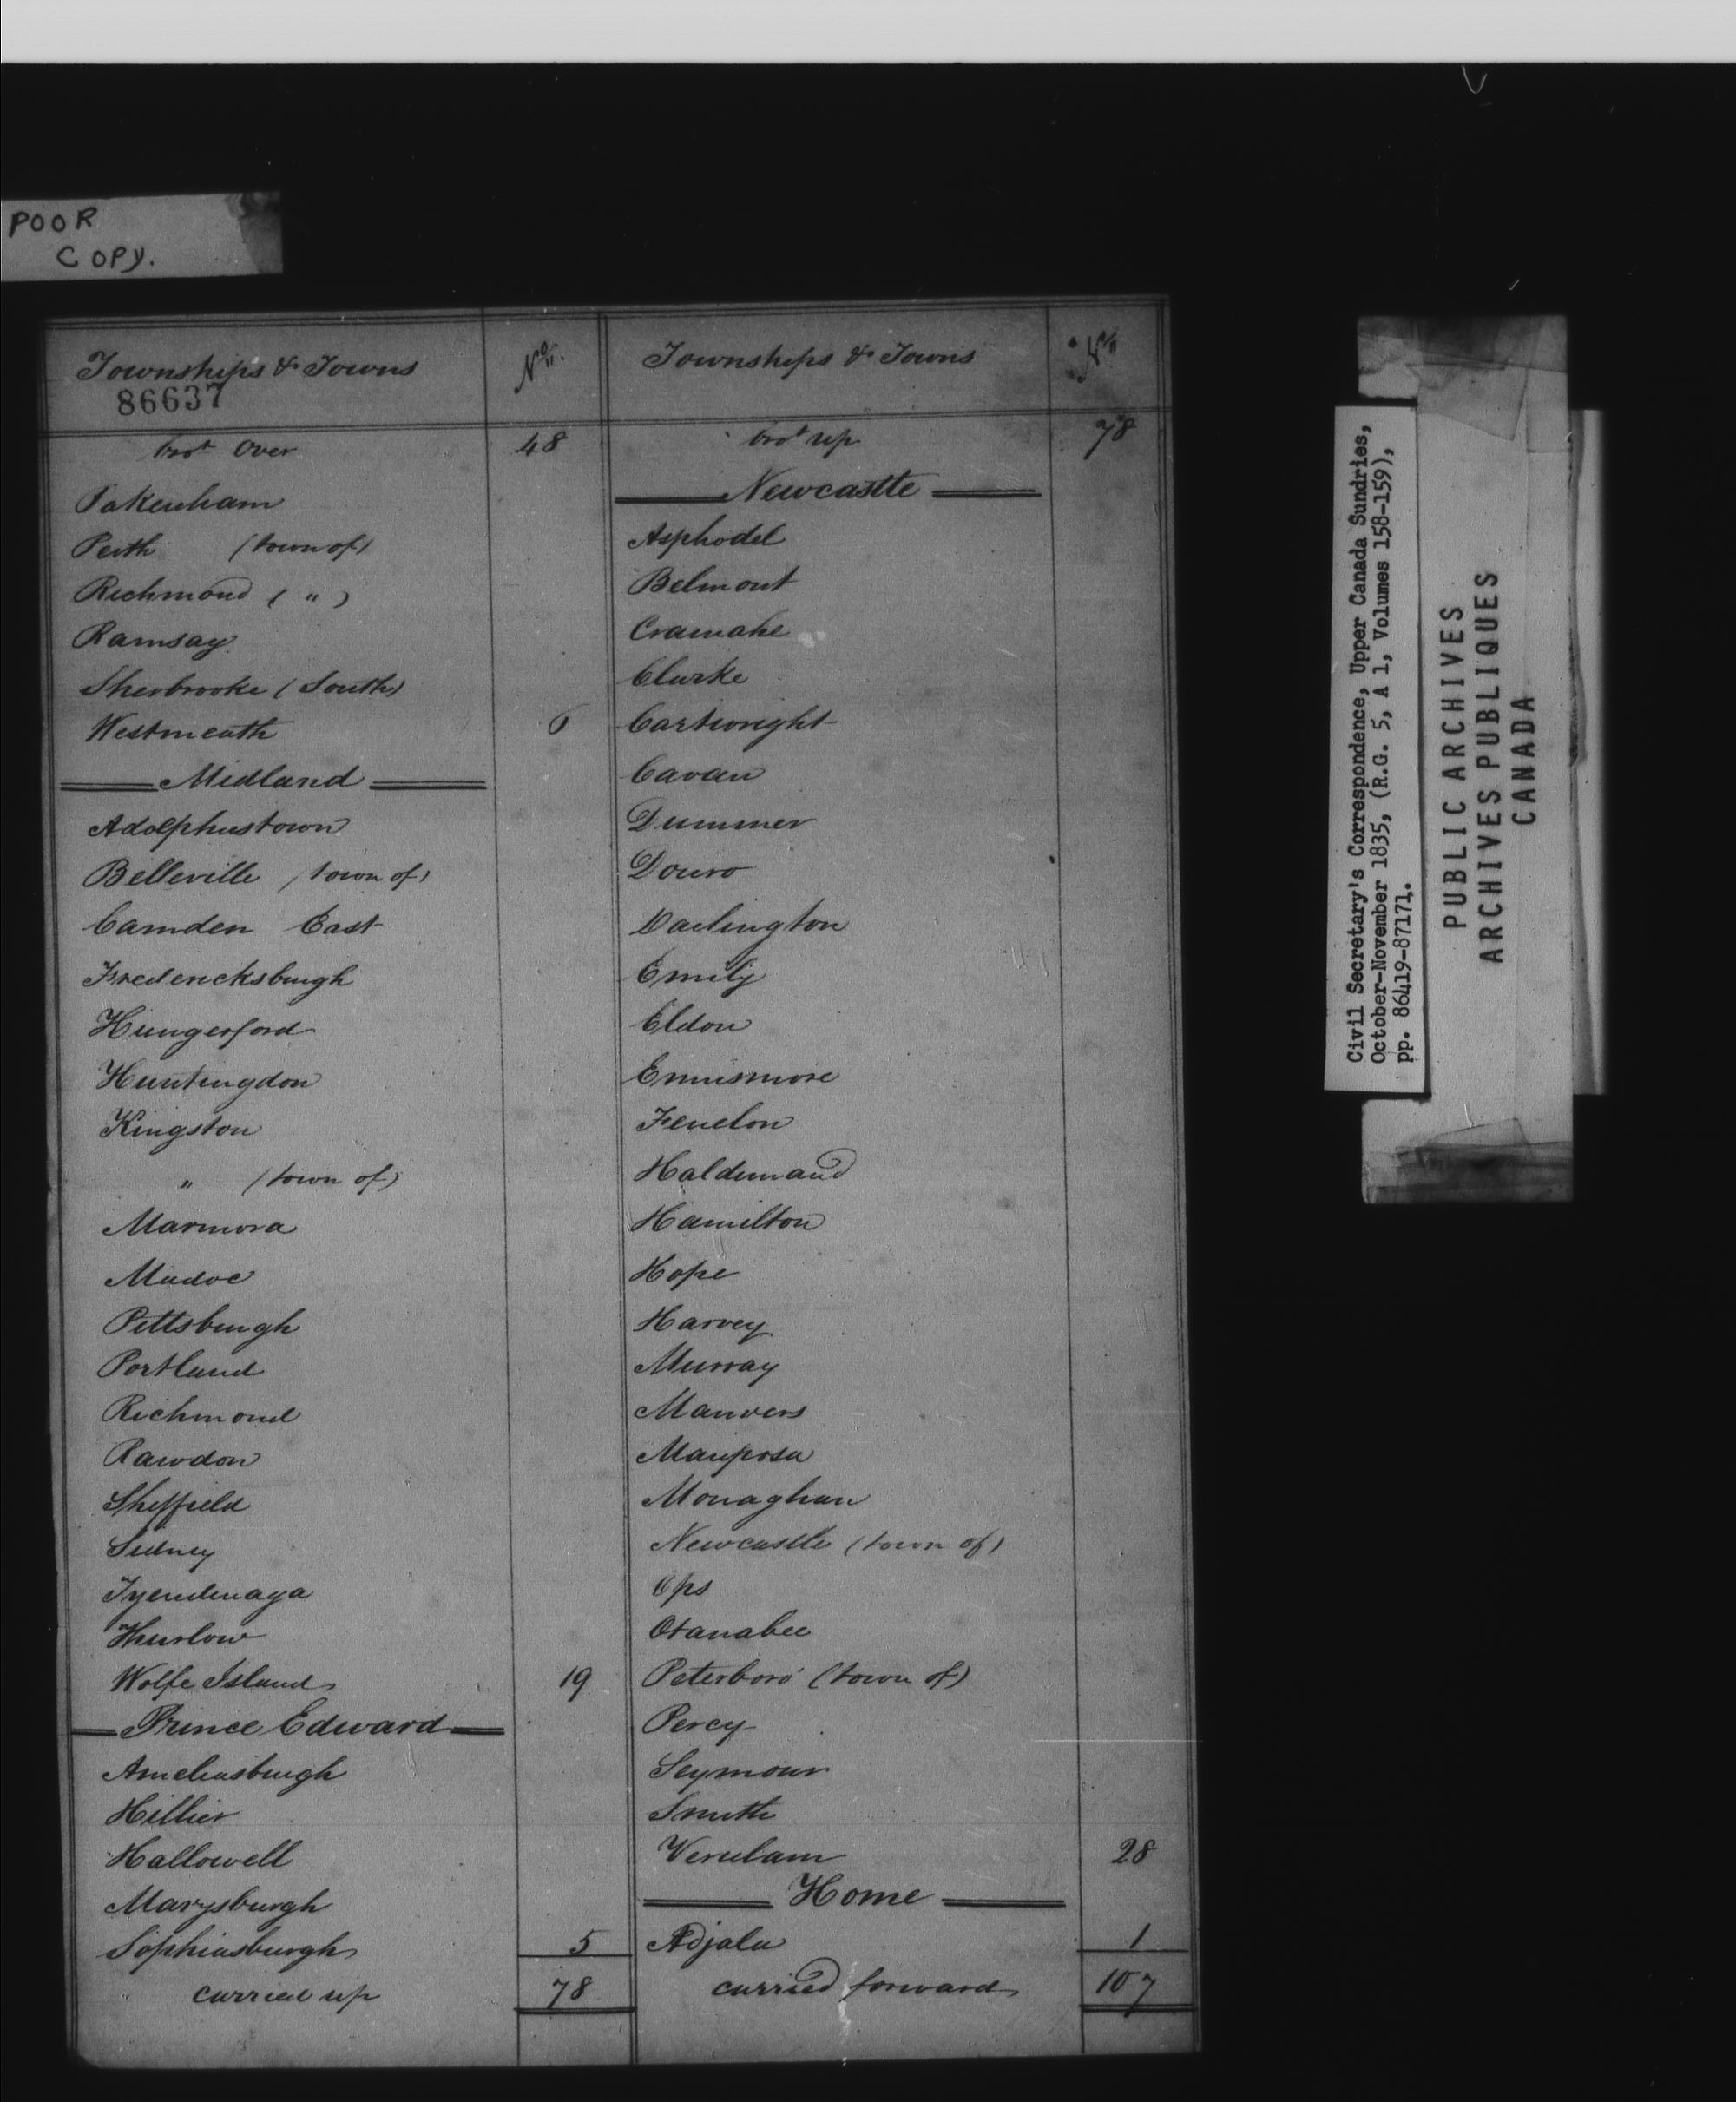 POOR
COPY.
Townships & Towns
No.
86637
brot Over 48
Pakenham
Perth (town of)
Richmond ( " )
Ramsay
Sherbrooke (South)
Westmeath 6
Midland
Adolphustown
Belleville (town of)
Camden East
Fredericksburgh
Hungerford
Huntingdon
Kingston
" (town of)
Marmora
Madoc
Pittsburgh
Portland
Richmond
Rawdon
Sheffield
Sidney
Tyendenaga
Thurlow
Wolfe Island 19
Prince Edward
Ameliasburgh
Hillier
Hallowell
Marysburgh
Sophiasburgh 5
carried up 78
Townships & Towns
No
brot up 78
Newcastle
Asphodel
Belmont
Cramahe
Clarke
Cartwright
Cavan
Dummer
Douro
Darlington
Emily
Eldon
Ennismore
Fenelon
Haldimand
Hamilton
Hope
Harvey
Murray
Manvers
Mariposa
Monaghan
Newcastle (town of)
Ops
Otanabee
Peterboro' (town of)
Percy
Seymour
Smith
Verulam 28
Home
Adjala 1
carried forward 107
Civil Secretary's Correspondence, Upper Canada Sundries,
October-November 1835, (R.G. 5, A 1, Volumes 158-159),
pp. 86419-87171.
PUBLIC ARCHIVES
ARCHIVES PUBLIQUES
CANADA